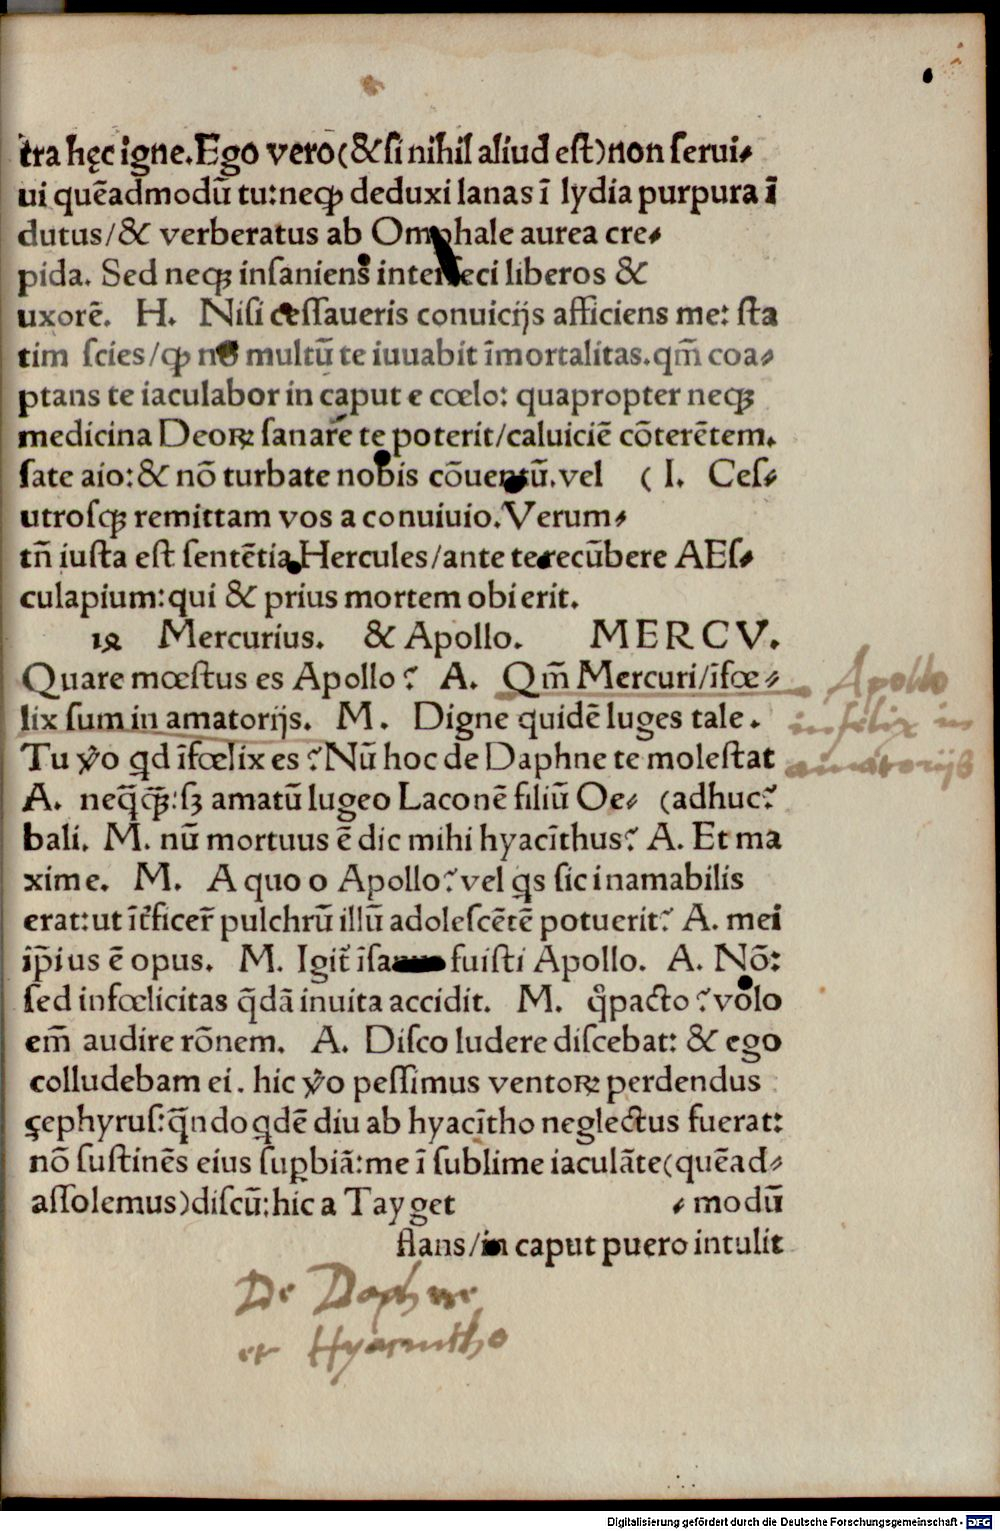 tra hęc igne. Ego vero (& si nihil aliud est) non serui⸗
ui quēadmodū tu: neqꝫ deduxi lanas ī lydia purpura ī
dutus/ & verberatus ab Omphale aurea cre⸗
pida. Sed neqꝫ insaniens interfeci liberos &
uxorē. H. Nisi cessaueris conuicijs afficiens me: sta
tim scies/ ꝙ nō multū te iuuabit īmortalitas. qm̄ coa⸗
ptans te iaculabor in caput e cœlo: quapropter neqꝫ
medicina Deoꝝ sanare te poterit/ caluiciē cōterētem.
sate aio: & nō turbate nobis cōuentū. vel ( I. Ces⸗
utrosqꝫ remittam vos a conuiuio. Verum⸗
tn̄ iusta est sentētia Hercules/ ante te recūbere AEs⸗
culapium: qui & prius mortem obierit.
Mercurius. & Apollo. MERCV.
Quare mœstus es Apollo? A. Qm̄ Mercuri/ ifœ⸗
lix sum in amatorijs. M. Digne quidē luges tale.
Tu v̊o qd īfœlix es? Nū hoc de Daphne te molestat
A. neq̄qꝫ̄: sꝫ amatū lugeo Laconē filiū Oe⸗ (adhuc?
bali. M. nū mortuus ē dic mihi hyacīthus? A. Et ma
xime. M. A quo o Apollo? vel qs sic inamabilis
erat: ut īt̄ficer̄ pulchrū illū adolescētē potuerit? A. mei
ip̄ius ē opus. M. Igit̄ īsanus fuisti Apollo. A. Nō:
sed infœlicitas q̄dā inuita accidit. M. q̊pacto? volo
em̄ audire rōnem. A. Disco ludere discebat: & ego
colludebam ei. hic v̊o pessimus ventoꝝ perdendus
çephyrus: q̄ndo qdē diu ab hyacītho neglectus fuerat:
nō sustinēs eius suꝑbiā: me ī sublime iaculāte (quēad⸗
assolemus) discū: hic a Tayget ⸗ modū
flans/ in caput puero intulit
Apollo
infelix in
amatorijs
De Daphne
et Hyacintho
Digitalisierung gefördert durch die Deutsche Forschungsgemeinschaft - DFG